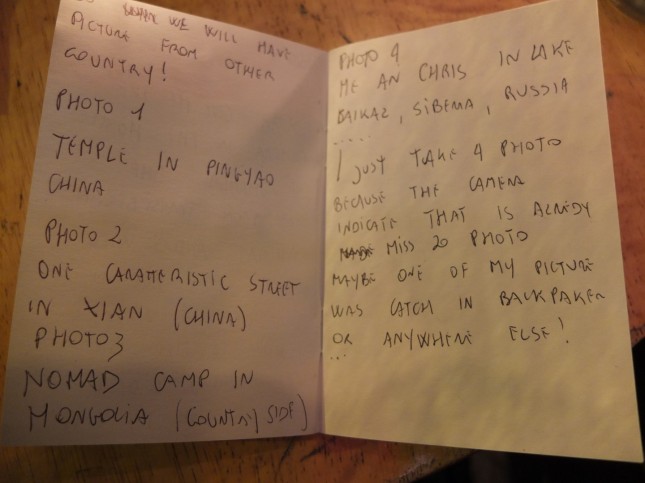 WE WILL HAVE
PICTURE FROM OTHER
COUNTRY!
PHOTO 1
TEMPLE IN PINGYAO
CHINA
PHOTO 2
ONE CARATTERISTIC STREET
IN XIAN (CHINA)
PHOTO 3
NOMAD CAMP IN
MONGOLIA (COUNTRY SIDE)
PHOTO 4
ME AN CHRIS IN LAKE
BAIKAL, SIBERIA, RUSSIA
.....
I JUST TAKE A PHOTO
BECAUSE THE CAMERA
INDICATE THAT IS ALREDY
MISS 20 PHOTO
MAYBE ONE OF MY PICTURE
WAS CATCH IN BACKPAKER
OR ANYWHERE ELSE!
...